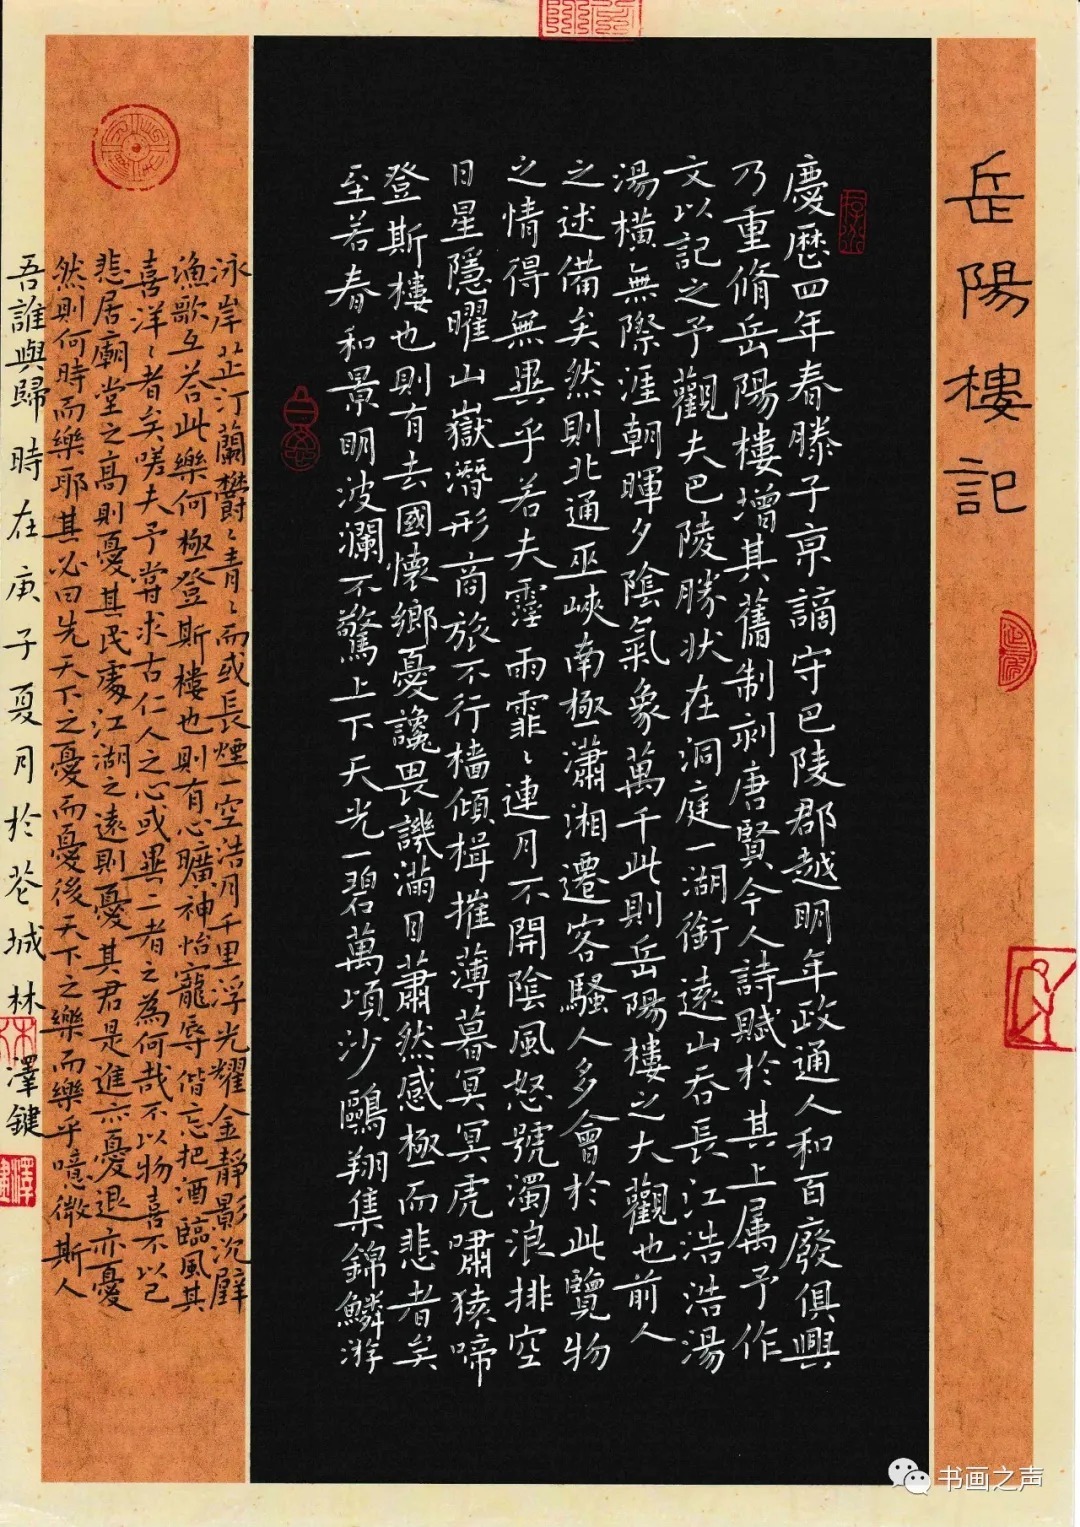 岳陽樓記
慶曆四年春滕子京謫守巴陵郡越明年政通人和百廢俱興
乃重脩岳陽樓增其舊制刻唐賢今人詩賦於其上属予作
文以記之予觀夫巴陵勝狀在洞庭一湖銜遠山吞長江浩浩湯
湯橫無際涯朝暉夕陰氣象萬千此則岳陽樓之大觀也前人
之述備矣然則北通巫峽南極瀟湘遷客騷人多會於此覽物
之情得無異乎若夫霪雨霏〻連月不開陰風怒號濁浪排空
日星隱曜山嶽潛形商旅不行檣傾楫摧薄暮冥冥虎嘯猿啼
登斯樓也則有去國懷鄉憂讒畏譏滿目蕭然感極而悲者矣
至若春和景明波瀾不驚上下天光一碧萬頃沙鷗翔集錦鱗游
泳岸芷汀蘭鬱〻青〻而或長煙一空浩月千里浮光耀金靜影沉璧
漁歌互荅此樂何極登斯樓也則有心曠神怡寵辱偕忘把酒臨風其
喜洋〻者矣嗟夫予嘗求古仁人之心或異二者之為何哉不以物喜不以己
悲居廟堂之高則憂其民處江湖之遠則憂其君是進亦憂退亦憂
然則何時而樂耶其必曰先天下之憂而憂後天下之樂而樂乎噫微斯人
吾誰與歸時在庚子夏月於花城林澤鍵
书画之声